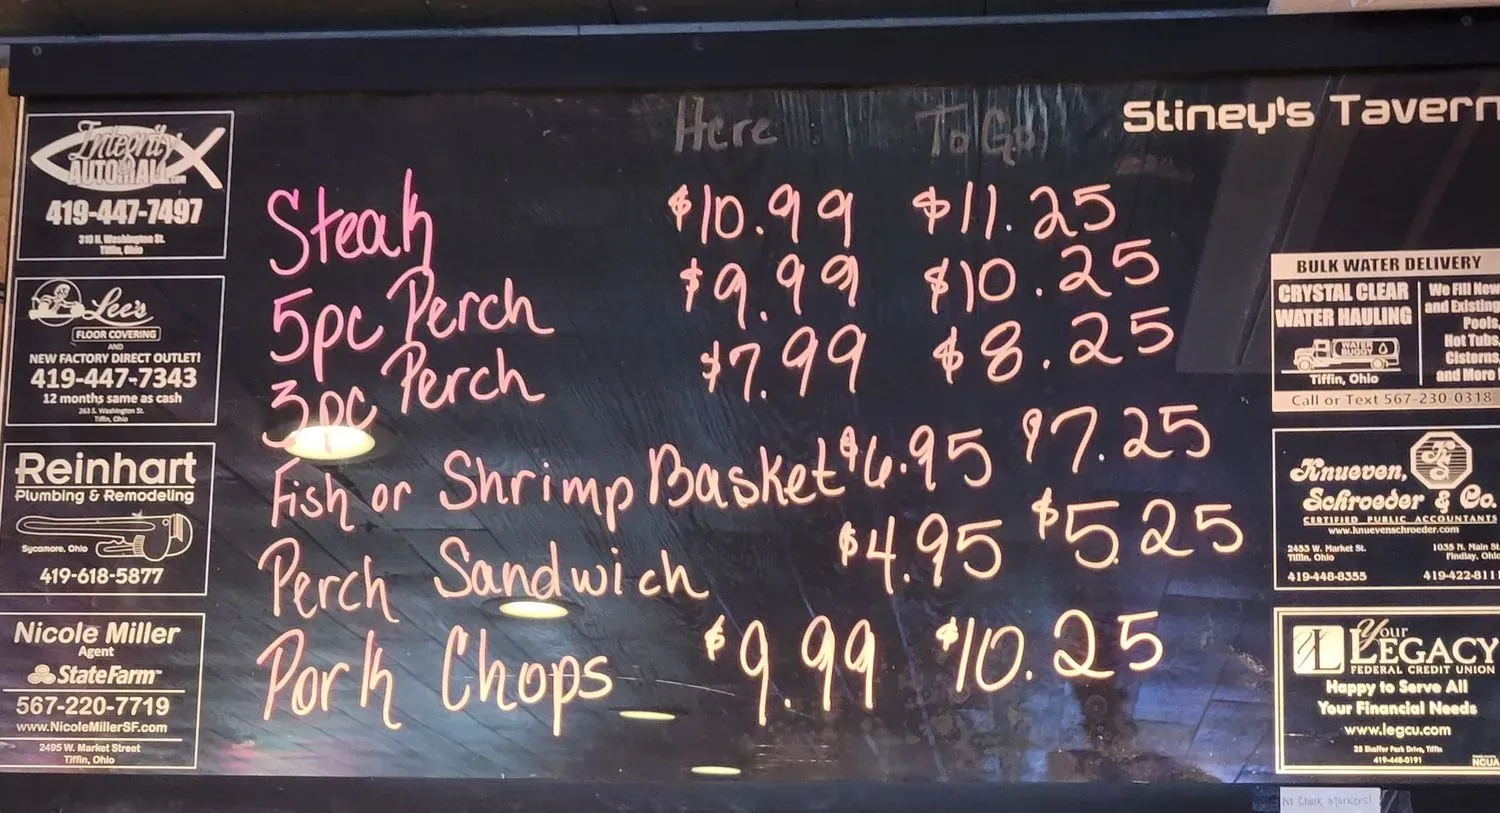 Here To Go
Stiney's Tavern
Steak $10.99 $11.25
5pc Perch $9.99 $10.25
3pc Perch $7.99 $8.25
Fish or Shrimp Basket $6.95 $7.25
Perch Sandwich $4.95 $5.25
Pork Chops $9.99 $10.25
Integrity
AUTO MALL
419-447-7497
310 N. Washington St.
Tiffin, Ohio
Lee's
FLOOR COVERING
AND
NEW FACTORY DIRECT OUTLET!
419-447-7343
12 months same as cash
263 S. Washington St.
Tiffin, Ohio
Reinhart
Plumbing & Remodeling
Sycamore, Ohio
419-618-5877
Nicole Miller
Agent
StateFarm™
567-220-7719
www.NicoleMillerSF.com
2495 W. Market Street
Tiffin, Ohio
BULK WATER DELIVERY
CRYSTAL CLEAR
WATER HAULING
WATER
BUGGY
Tiffin, Ohio
We Fill New
and Existing
Pools,
Hot Tubs,
Cisterns,
and More!
Call or Text 567-230-0318
Knueven,
Schroeder & Co.
CERTIFIED PUBLIC ACCOUNTANTS
www.knuevenschroeder.com
2453 W. Market St. 1035 N. Main St
Tiffin, Ohio Findlay, Ohio
419-448-8355 419-422-811
Your
LEGACY
FEDERAL CREDIT UNION
Happy to Serve All
Your Financial Needs
www.legcu.com
25 Shaffer Park Drive, Tiffin
419-448-0191
NCUA
No Chalk Markers!